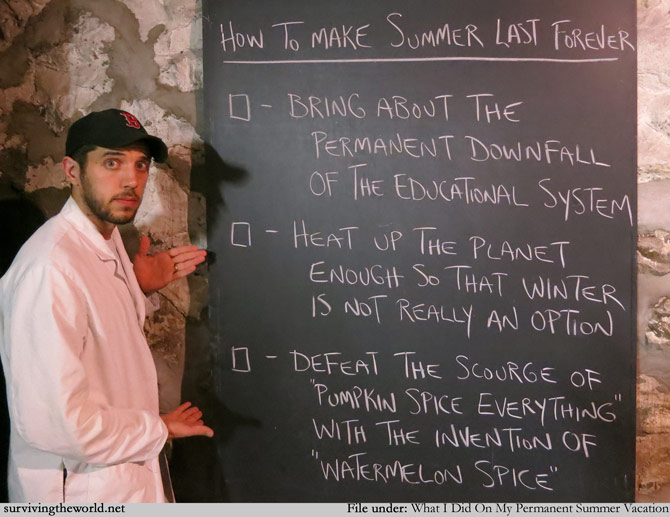 HOW TO MAKE SUMMER LAST FOREVER
- BRING ABOUT THE
PERMANENT DOWNFALL
OF THE EDUCATIONAL SYSTEM
- HEAT UP THE PLANET
ENOUGH SO THAT WINTER
IS NOT REALLY AN OPTION
- DEFEAT THE SCOURGE OF
"PUMPKIN SPICE EVERYTHING"
WITH THE INVENTION OF
"WATERMELON SPICE"
B
survivingtheworld.net
File under: What I Did On My Permanent Summer Vacation